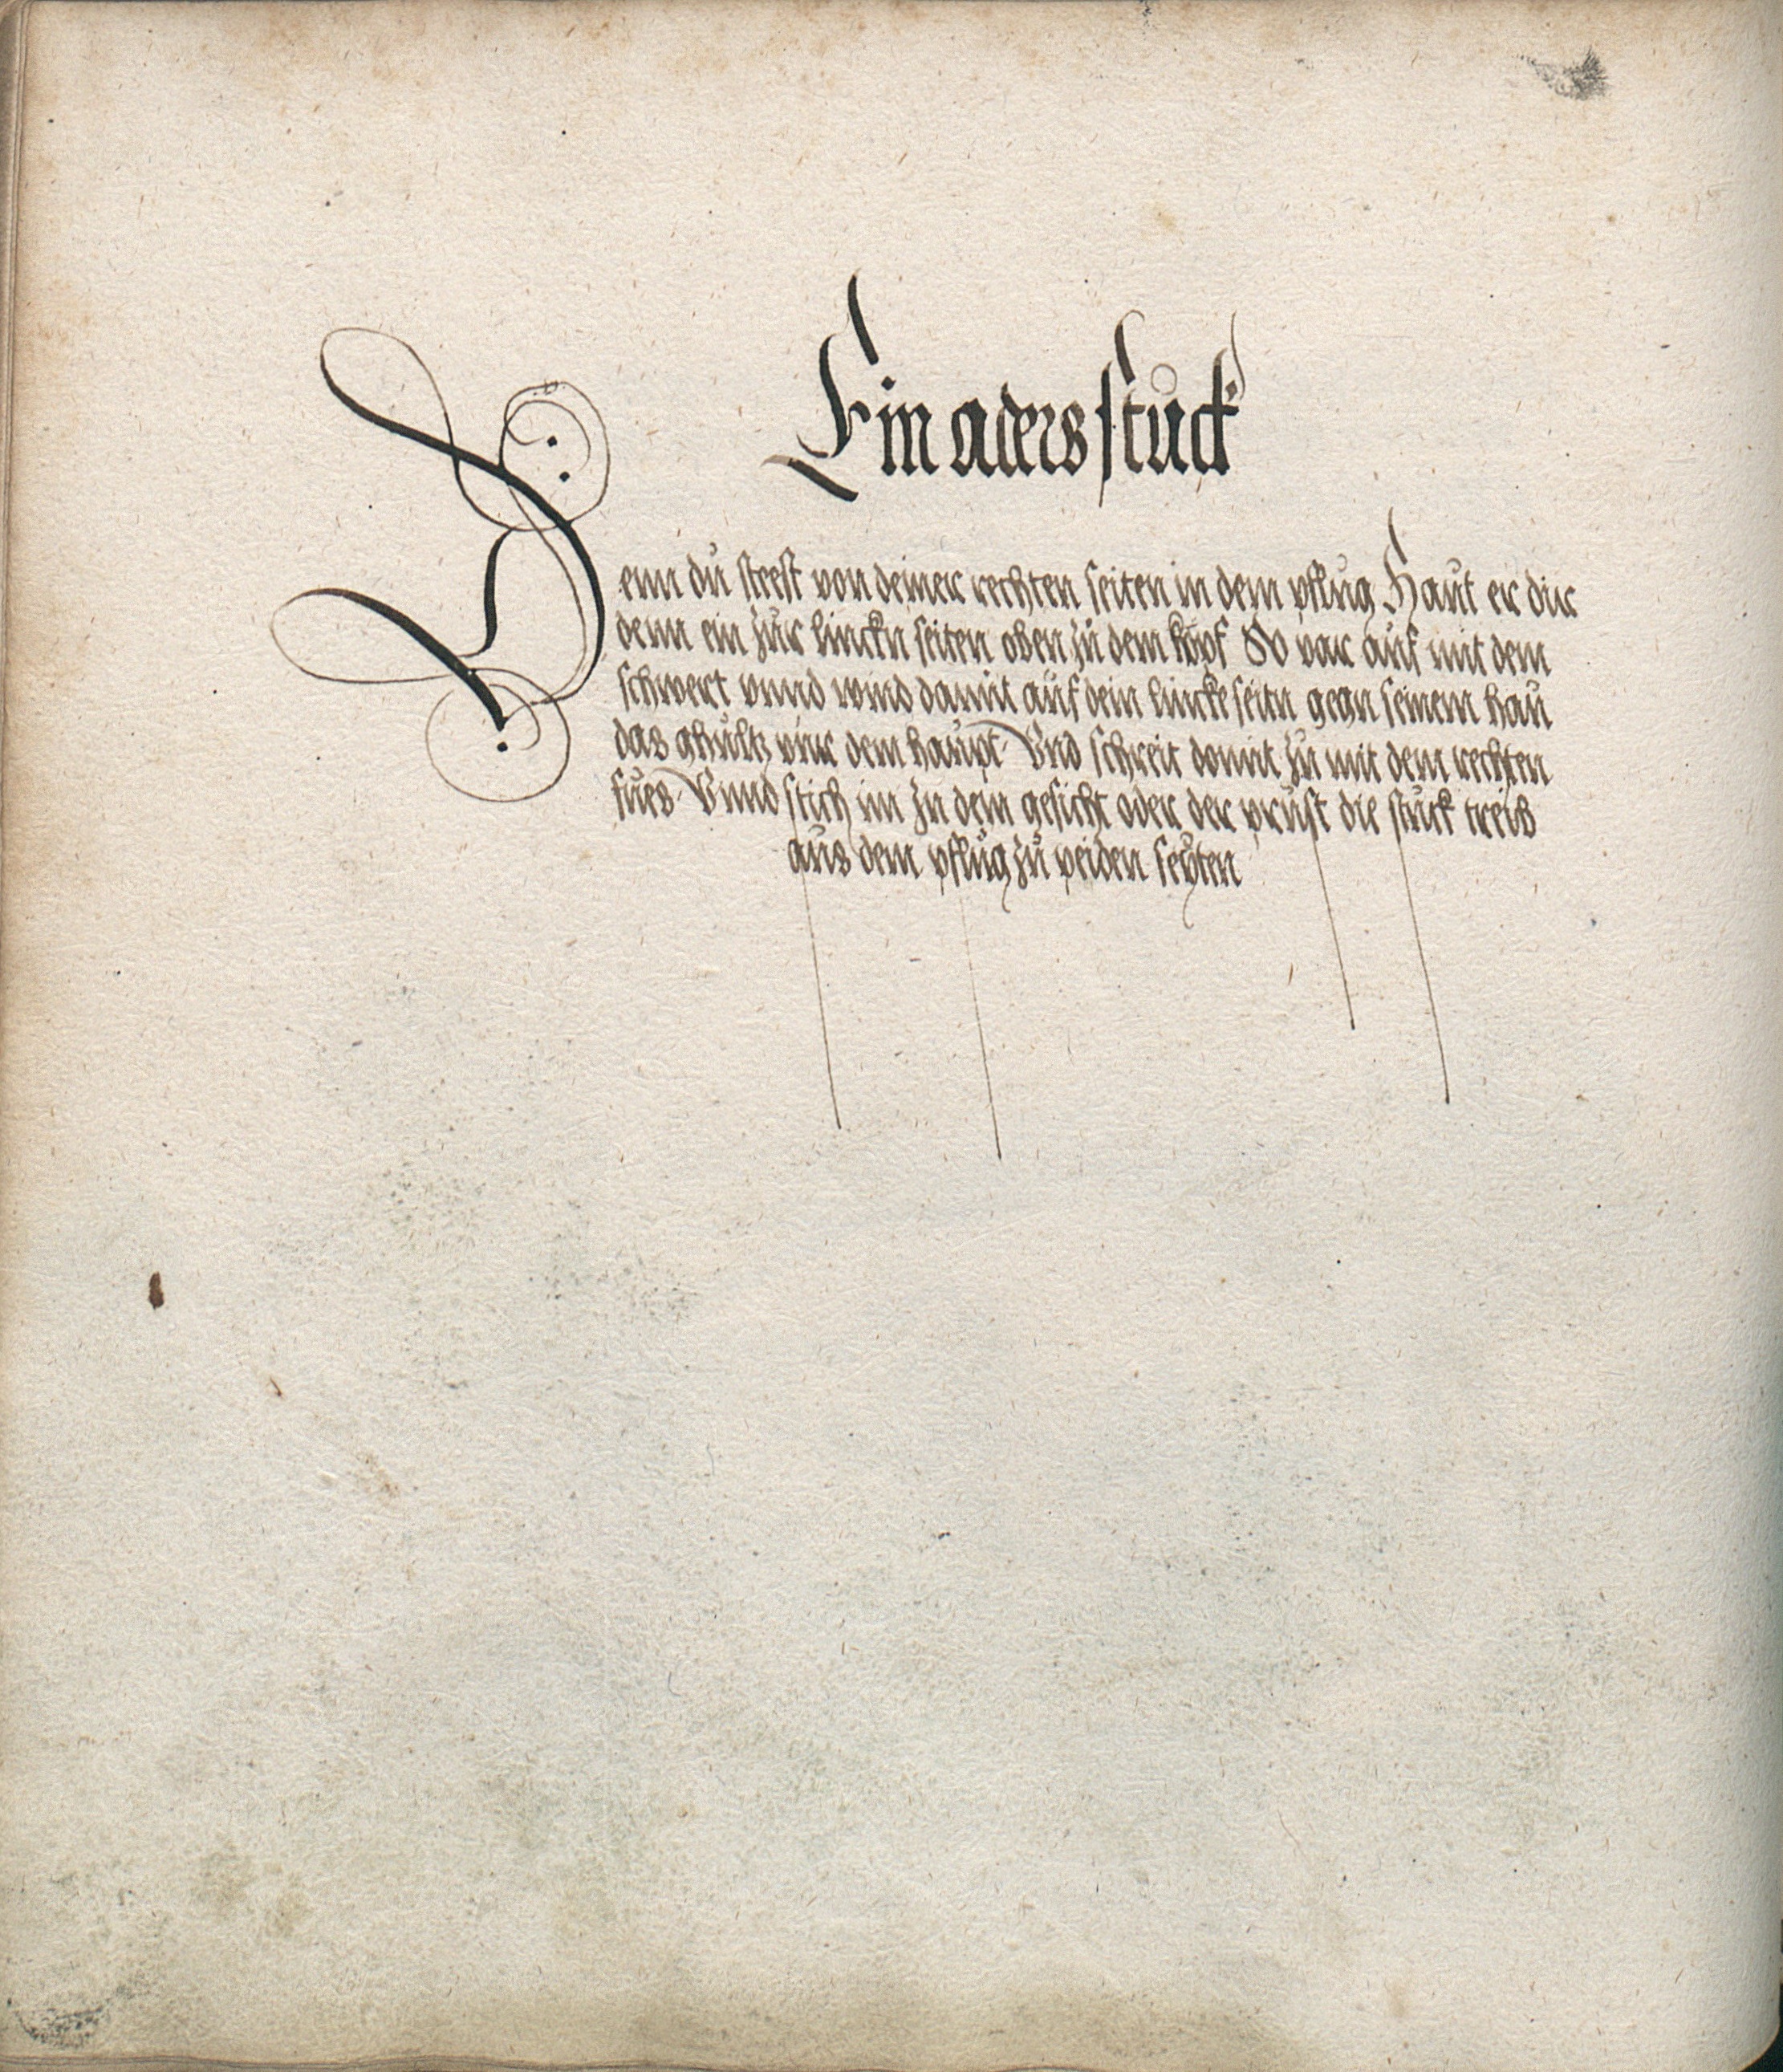 Ein aders stuck
Wenn du steest von deiner rechten seiten in dem pflug Haut er dir
denn ein zur linckn seiten oben zu dem kopf So var auf mit dem
schwert vnnd wind damit auf dein lincke seitn gegn seinem hau
das ghultz vür dem haupt Vnd schreit domit zu mit dem rechten
fues Vnnd stich im zu dem gesicht oder der prust die stuck treib
aus dem pflug zu peiden seyten